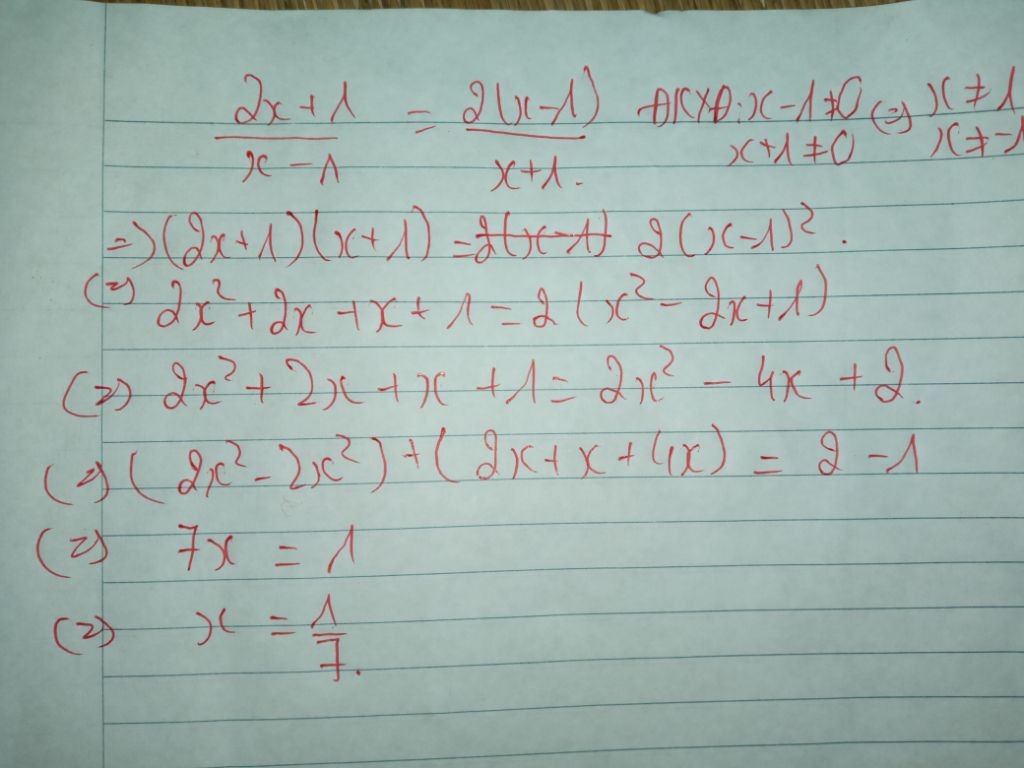 2x + 1 / x - 1 = 2(x - 1) / x + 1. ĐKXĐ: x - 1 ≠ 0 (=) x ≠ 1
x + 1 ≠ 0 x ≠ -1
=> (2x + 1)(x + 1) = 2(x - 1) 2(x - 1)².
(=) 2x² + 2x + x + 1 = 2(x² - 2x + 1)
(=) 2x² + 2x + x + 1 = 2x² - 4x + 2.
(=) (2x² - 2x²) + (2x + x + 4x) = 2 - 1
(=) 7x = 1
(=) x = 1/7.